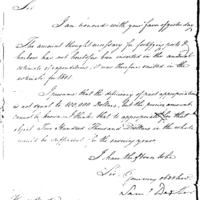 Sir
I am honored with your favor of yesterday
The amount thought necessary for fortifying ports &
harbors has not heretofore been inserted in the annual
estimate of expenditures, it was therefore omitted in the
estimate for 1801.
I presume that the deficiency of past appropriations
is not equal to 100,000 Dollars, but the precise amount
cannot be known. I think that to appropriate for that
object Two Hundred Thousand Dollars in the whole
would be sufficient for the ensuing year
I have the honor to be
Sir,
your ob servt
Saml Dexter